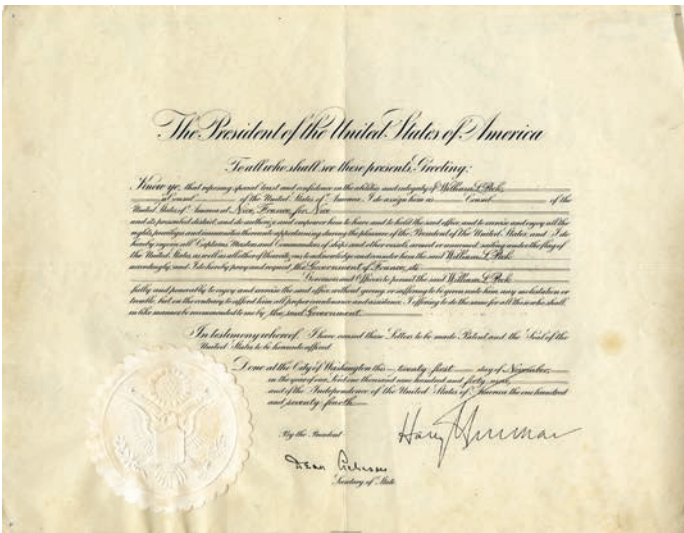 The President of the United States of America
To all who shall see these presents, Greeting:
Know ye, that reposing special trust and confidence in the abilities and integrity of William L. Peck,
a consul of the United States of America, I do assign him as Consul of the
United States of America at Nice, France, for Nice
and its personal district, and do authorize and empower him to have and to hold the said office, and to exercise and enjoy all the
rights, privileges and immunities thereunto appertaining during the pleasure of the President of the United States, and I do
hereby enjoin all Captains, Masters and Commanders of ships and other vessels, armed or unarmed, sailing under the flag of
the United States, as well as all other of their citizens, to acknowledge and consider him the said William L. Peck
accordingly, and I do hereby pray and request the Government of France, its
Governors and Officers to permit the said William L. Peck
fully and peaceably to enjoy and exercise the said office without giving or suffering to be given unto him, any molestation or
trouble, but on the contrary to afford him all proper countenance and assistance: I offering to do the same for all those who shall
in like manner be recommended to me by the said Government.
In testimony whereof, I have caused these Letters to be made Patent and the Seal of the
United States to be hereunto affixed.
Done at the City of Washington this twenty-first day of November,
in the year of our Lord one thousand nine hundred and forty-nine,
and of the Independence of the United States of America the one hundred
and seventy-fourth
By the President
Harry Truman
Dean Acheson
Secretary of State